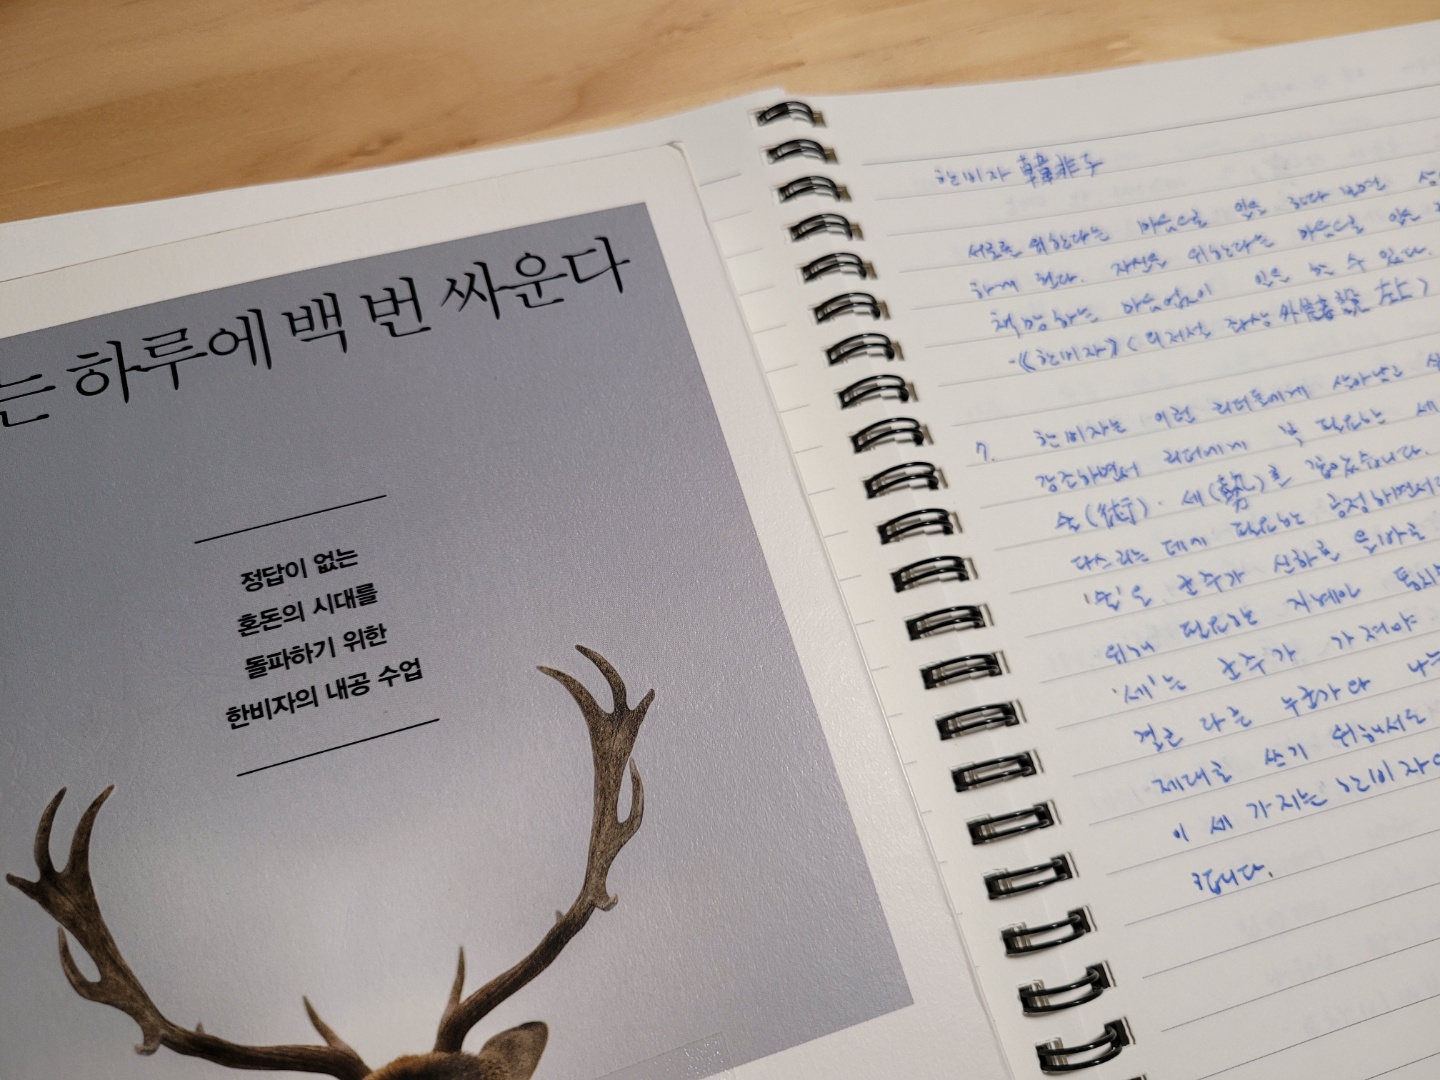 는 하루에 백 번 싸운다
정답이 없는
혼돈의 시대를
돌파하기 위한
한비자의 내공 수업
한비자 韓非子
서로를 위한다는 마음으로 일을 한다 보면
하게 된다. 자신을 위한다는 마음으로 일을
책망하는 마음없이 일을 할 수 있다.
-《한비자》〈외저설 좌상 外儲說 左上〉
7. 한비자는 이런 리더들에게 살아남고
강조하면서 리더에게 꼭 필요한 세
술(術)·세(勢)를 꼽았습니다.
다스리는 데에 필요한 긍정하면서
'술'은 군주가 신하를 올바로
위해 필요한 지혜이
'세'는 군주가 가져야
결코 다른 누군가와
제대로 쓰기 위해서는
이 세 가지는 한비자
입니다.